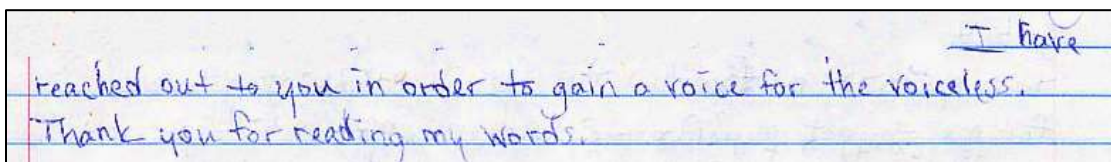 I have
reached out to you in order to gain a voice for the voiceless.
Thank you for reading my words.